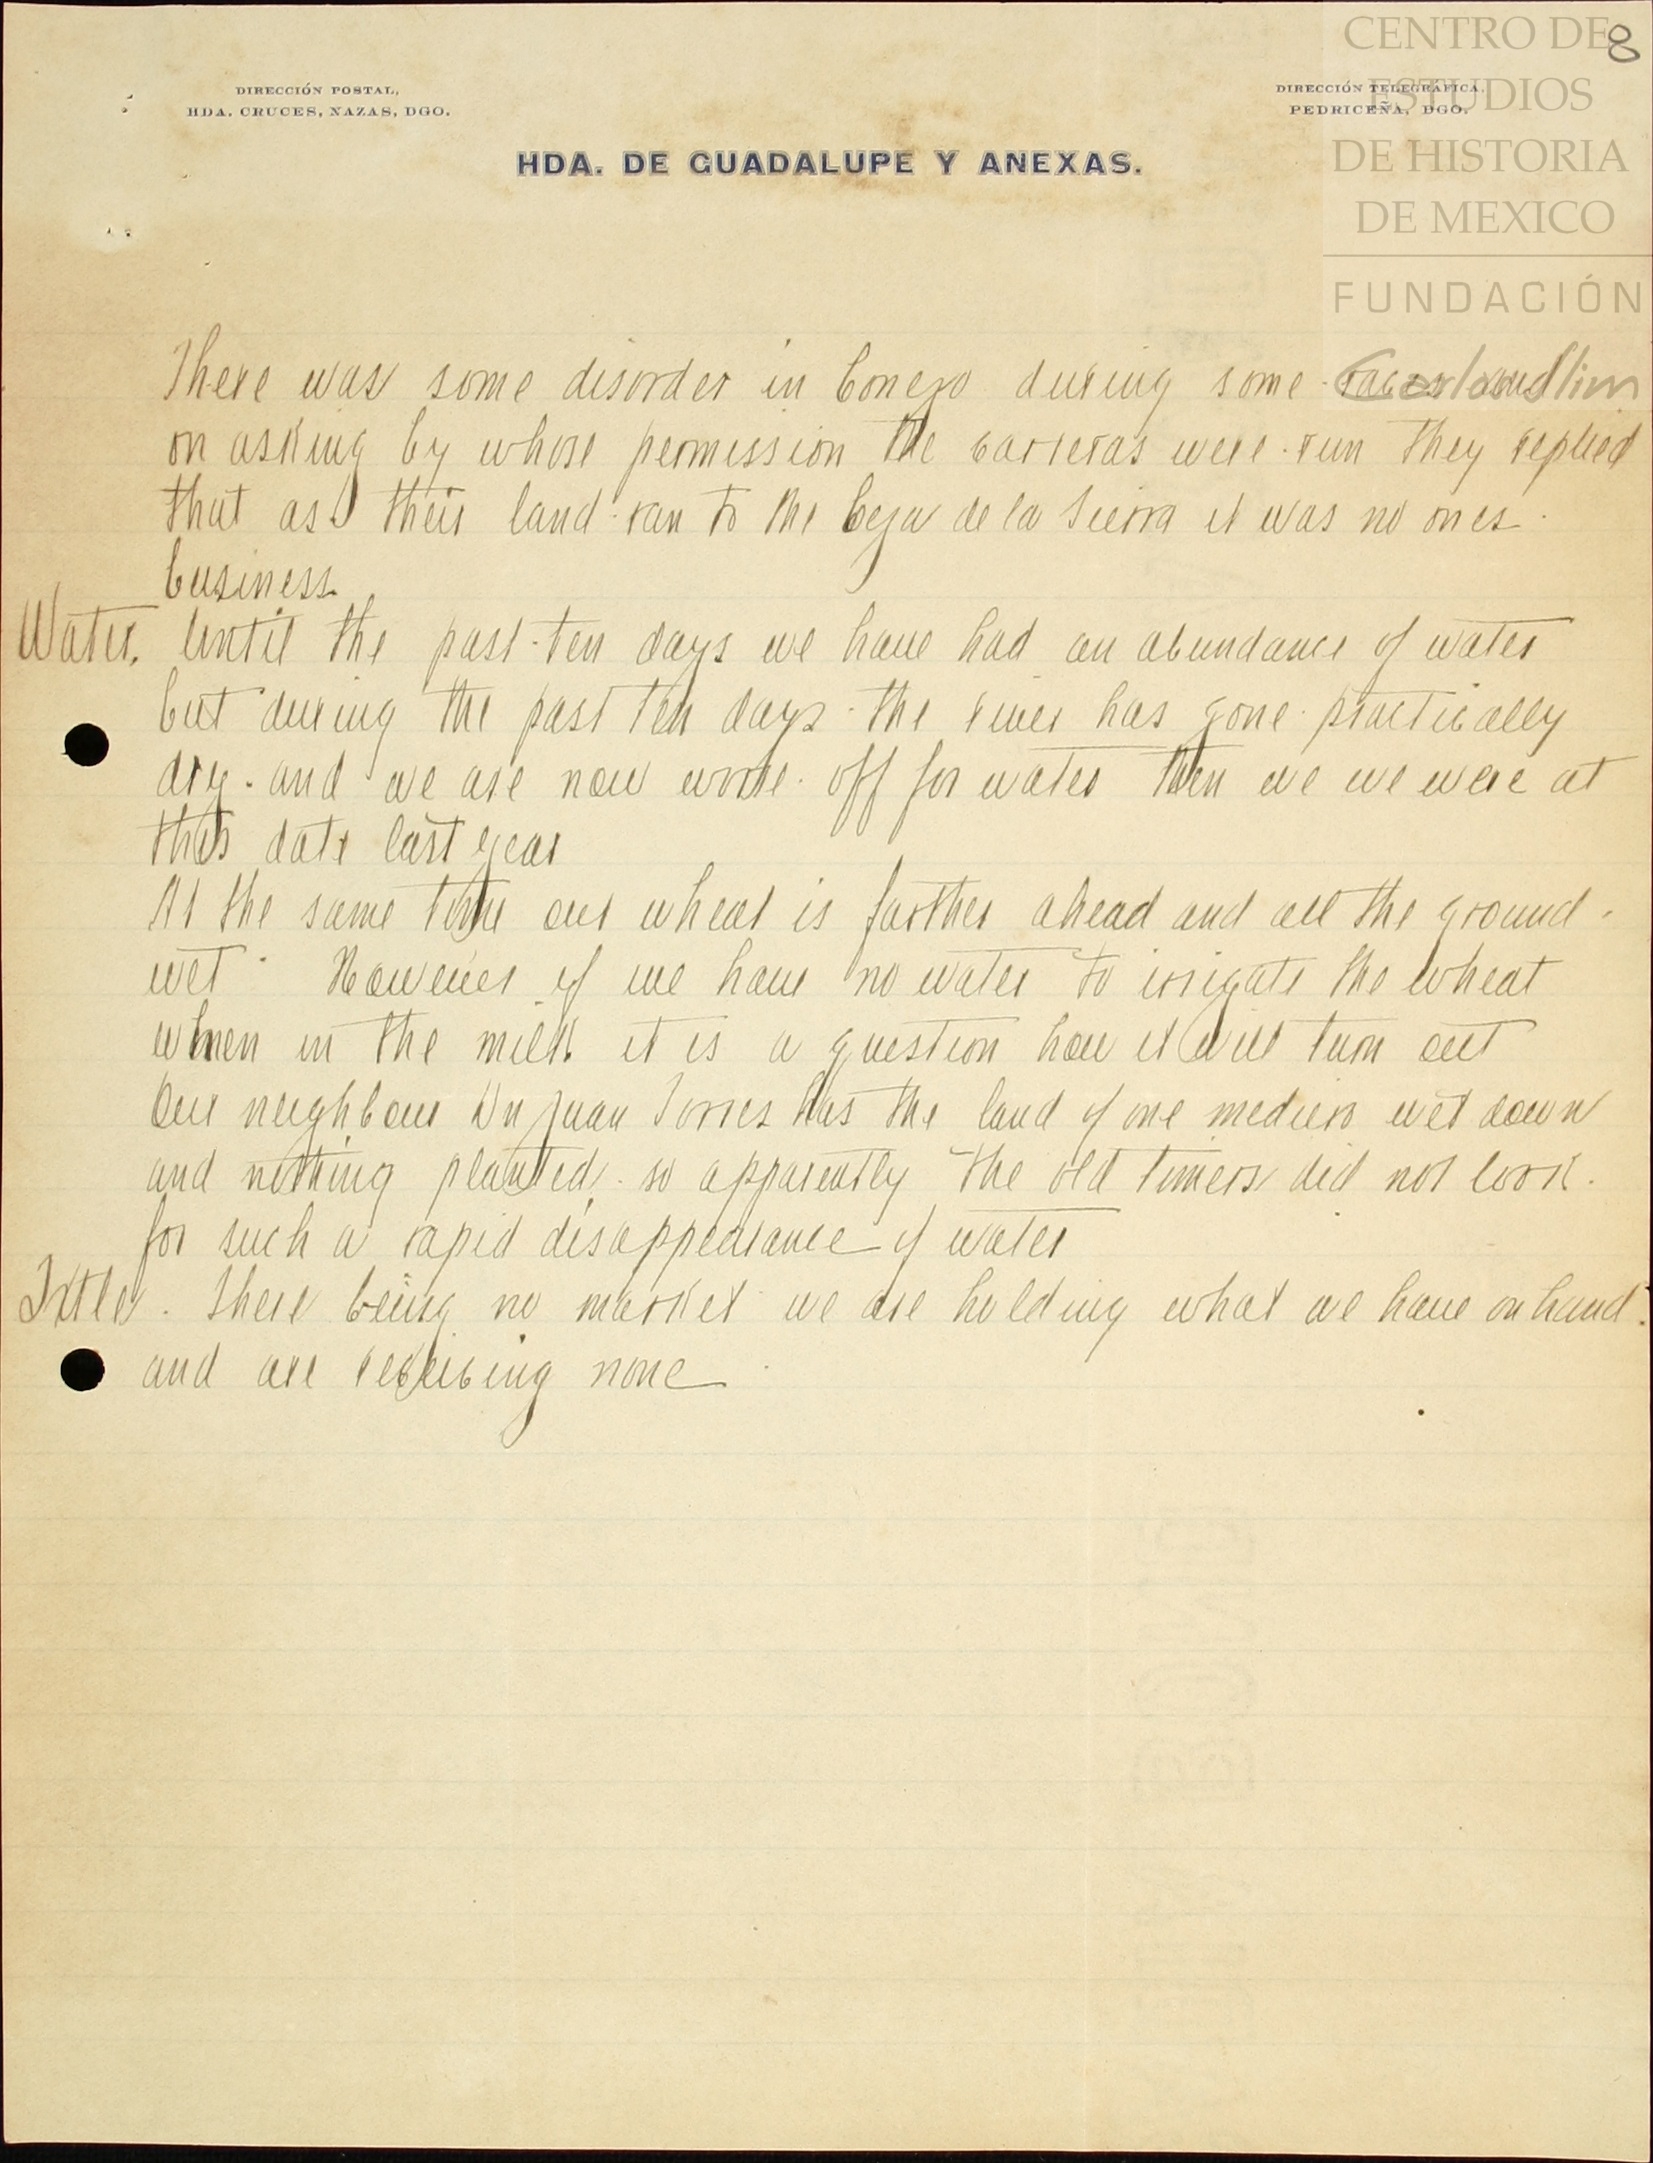 CENTRO DE
ESTUDIOS
DE HISTORIA
DE MEXICO
FUNDACIÓN
Carlos Slim
8
DIRECCIÓN POSTAL,
HDA. CRUCES, NAZAS, DGO.
DIRECCIÓN TELEGRÁFICA,
PEDRICEÑA, DGO.
HDA. DE GUADALUPE Y ANEXAS.
There was some disorder in Conejo during some races and
on asking by whose permission the carreras were run they replied
that as their land ran to the Ceja de la Sierra it was no ones
business
Water. Until the past ten days we have had an abundance of water
but during the past ten days the river has gone practically
dry. and we are now worse off for water then we we were at
this date last year
At the same time our wheat is farther ahead and all the ground
wet. However if we have no water to irrigate the wheat
when in the milk it is a question how it will turn out
Our neighbour Dn Juan Torres has the land of one mediero wet down
and nothing planted, so apparently the old timers did not look
for such a rapid disappearance of water
Ixtle. There being no market we are holding what we have on hand.
and are receiving none